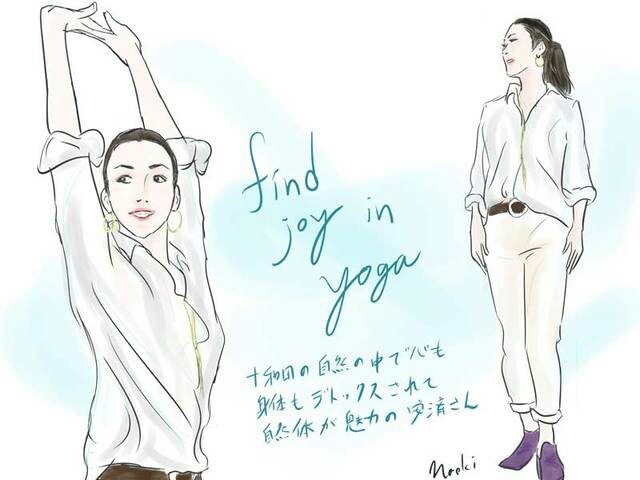 find
joy in
yoga
十和田の自然の中で心も
身体もデトックスされて
自然体が魅力の安済さん
Naoki